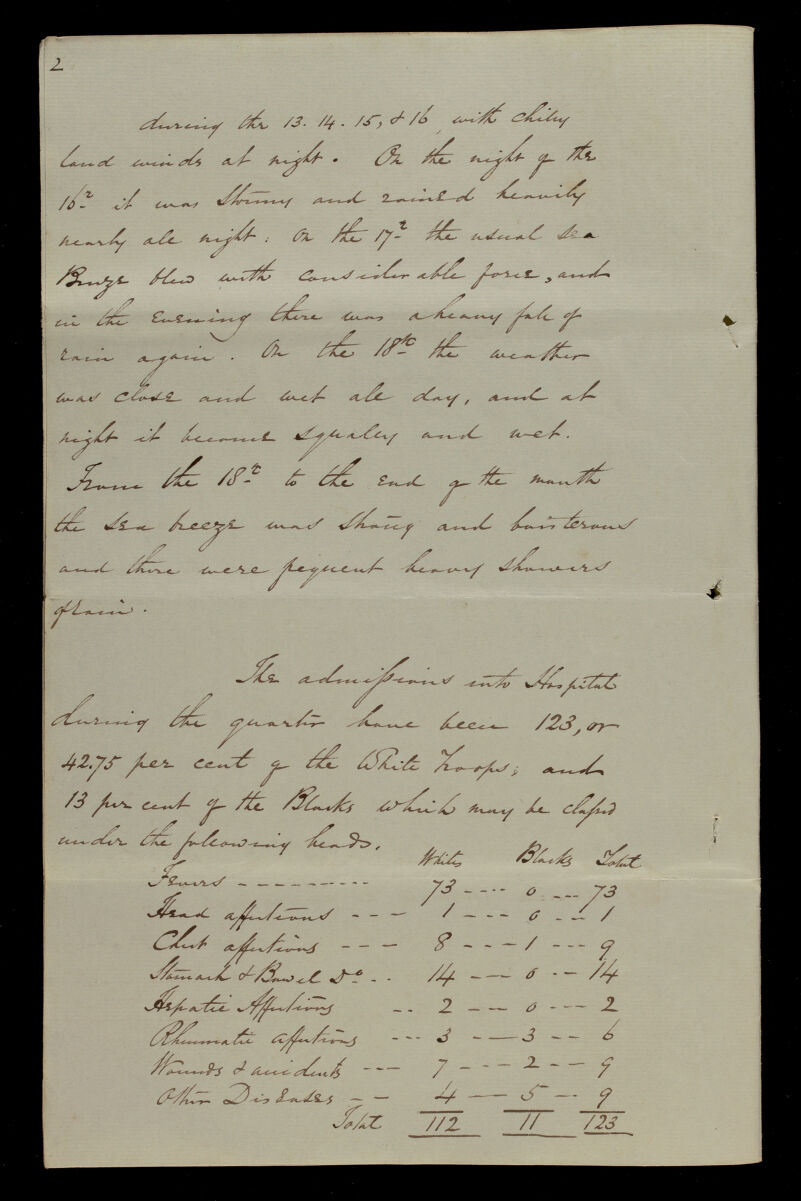 2
during the 13. 14. 15, & 16, with chilly
land winds at night. On the night of the
16th it was Stormy and rained heavily
nearly all night: on the 17th the usual sea
Breeze blew with considerable force, and
in the Evening there was a heavy fall of
rain again. On the 18th the weather
was close and wet all day, and at
night it became squally and wet.
From the 18th to the End of the month
the sea breeze was strong and boisterous
and there were frequent heavy showers
of rain.
The admissions into Hospital
during the quarter have been 123, or
42.75 per cent of the White Troops; and
13 per cent of the Blacks which may be classed
under the following heads.
Whites Blacks Total
Fevers --------- 73 ---- 0 --- 73
Head affections --- 1 --- 0 --- 1
Chest affections --- 8 --- 1 --- 9
Stomach & Bowel Do. -- 14 --- 0 -- 14
Hepatic Affections -- 2 --- 0 --- 2
Rheumatic affections --- 3 --- 3 -- 6
Wounds & accidents --- 7 --- 2 -- 9
Other Diseases -- 4 -- 5 -- 9
Total 112 11 123